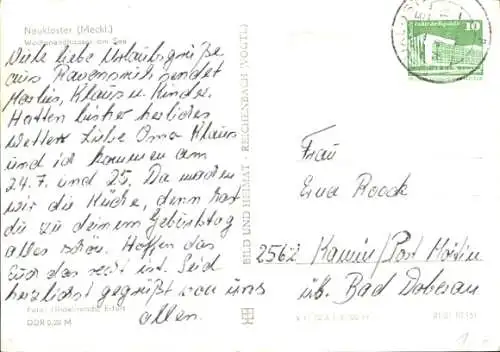 Neukloster (Meckl.)
Wochenendhäuser am See
Viele liebe Urlaubsgrüße
aus sendet
Marlies, Klaus u. Kinder.
Hatten bisher herrliches
Wetter. Liebe Oma Klaus
und ich kommen am
24.7. und 25. Da machen
wir die Küche, dann hast
du zu deinem Geburtstag
alles schön. Hoffen das
Euch das recht ist. Seid
herzlichst gegrüßt von uns
allen.
Foto: Erfurt
DDR 0,20 M
BILD UND HEIMAT · REICHENBACH (VOGTL)
10
Frau
Erna Roock
2562 Kamin/Post Moitin
üb. Bad Doberan